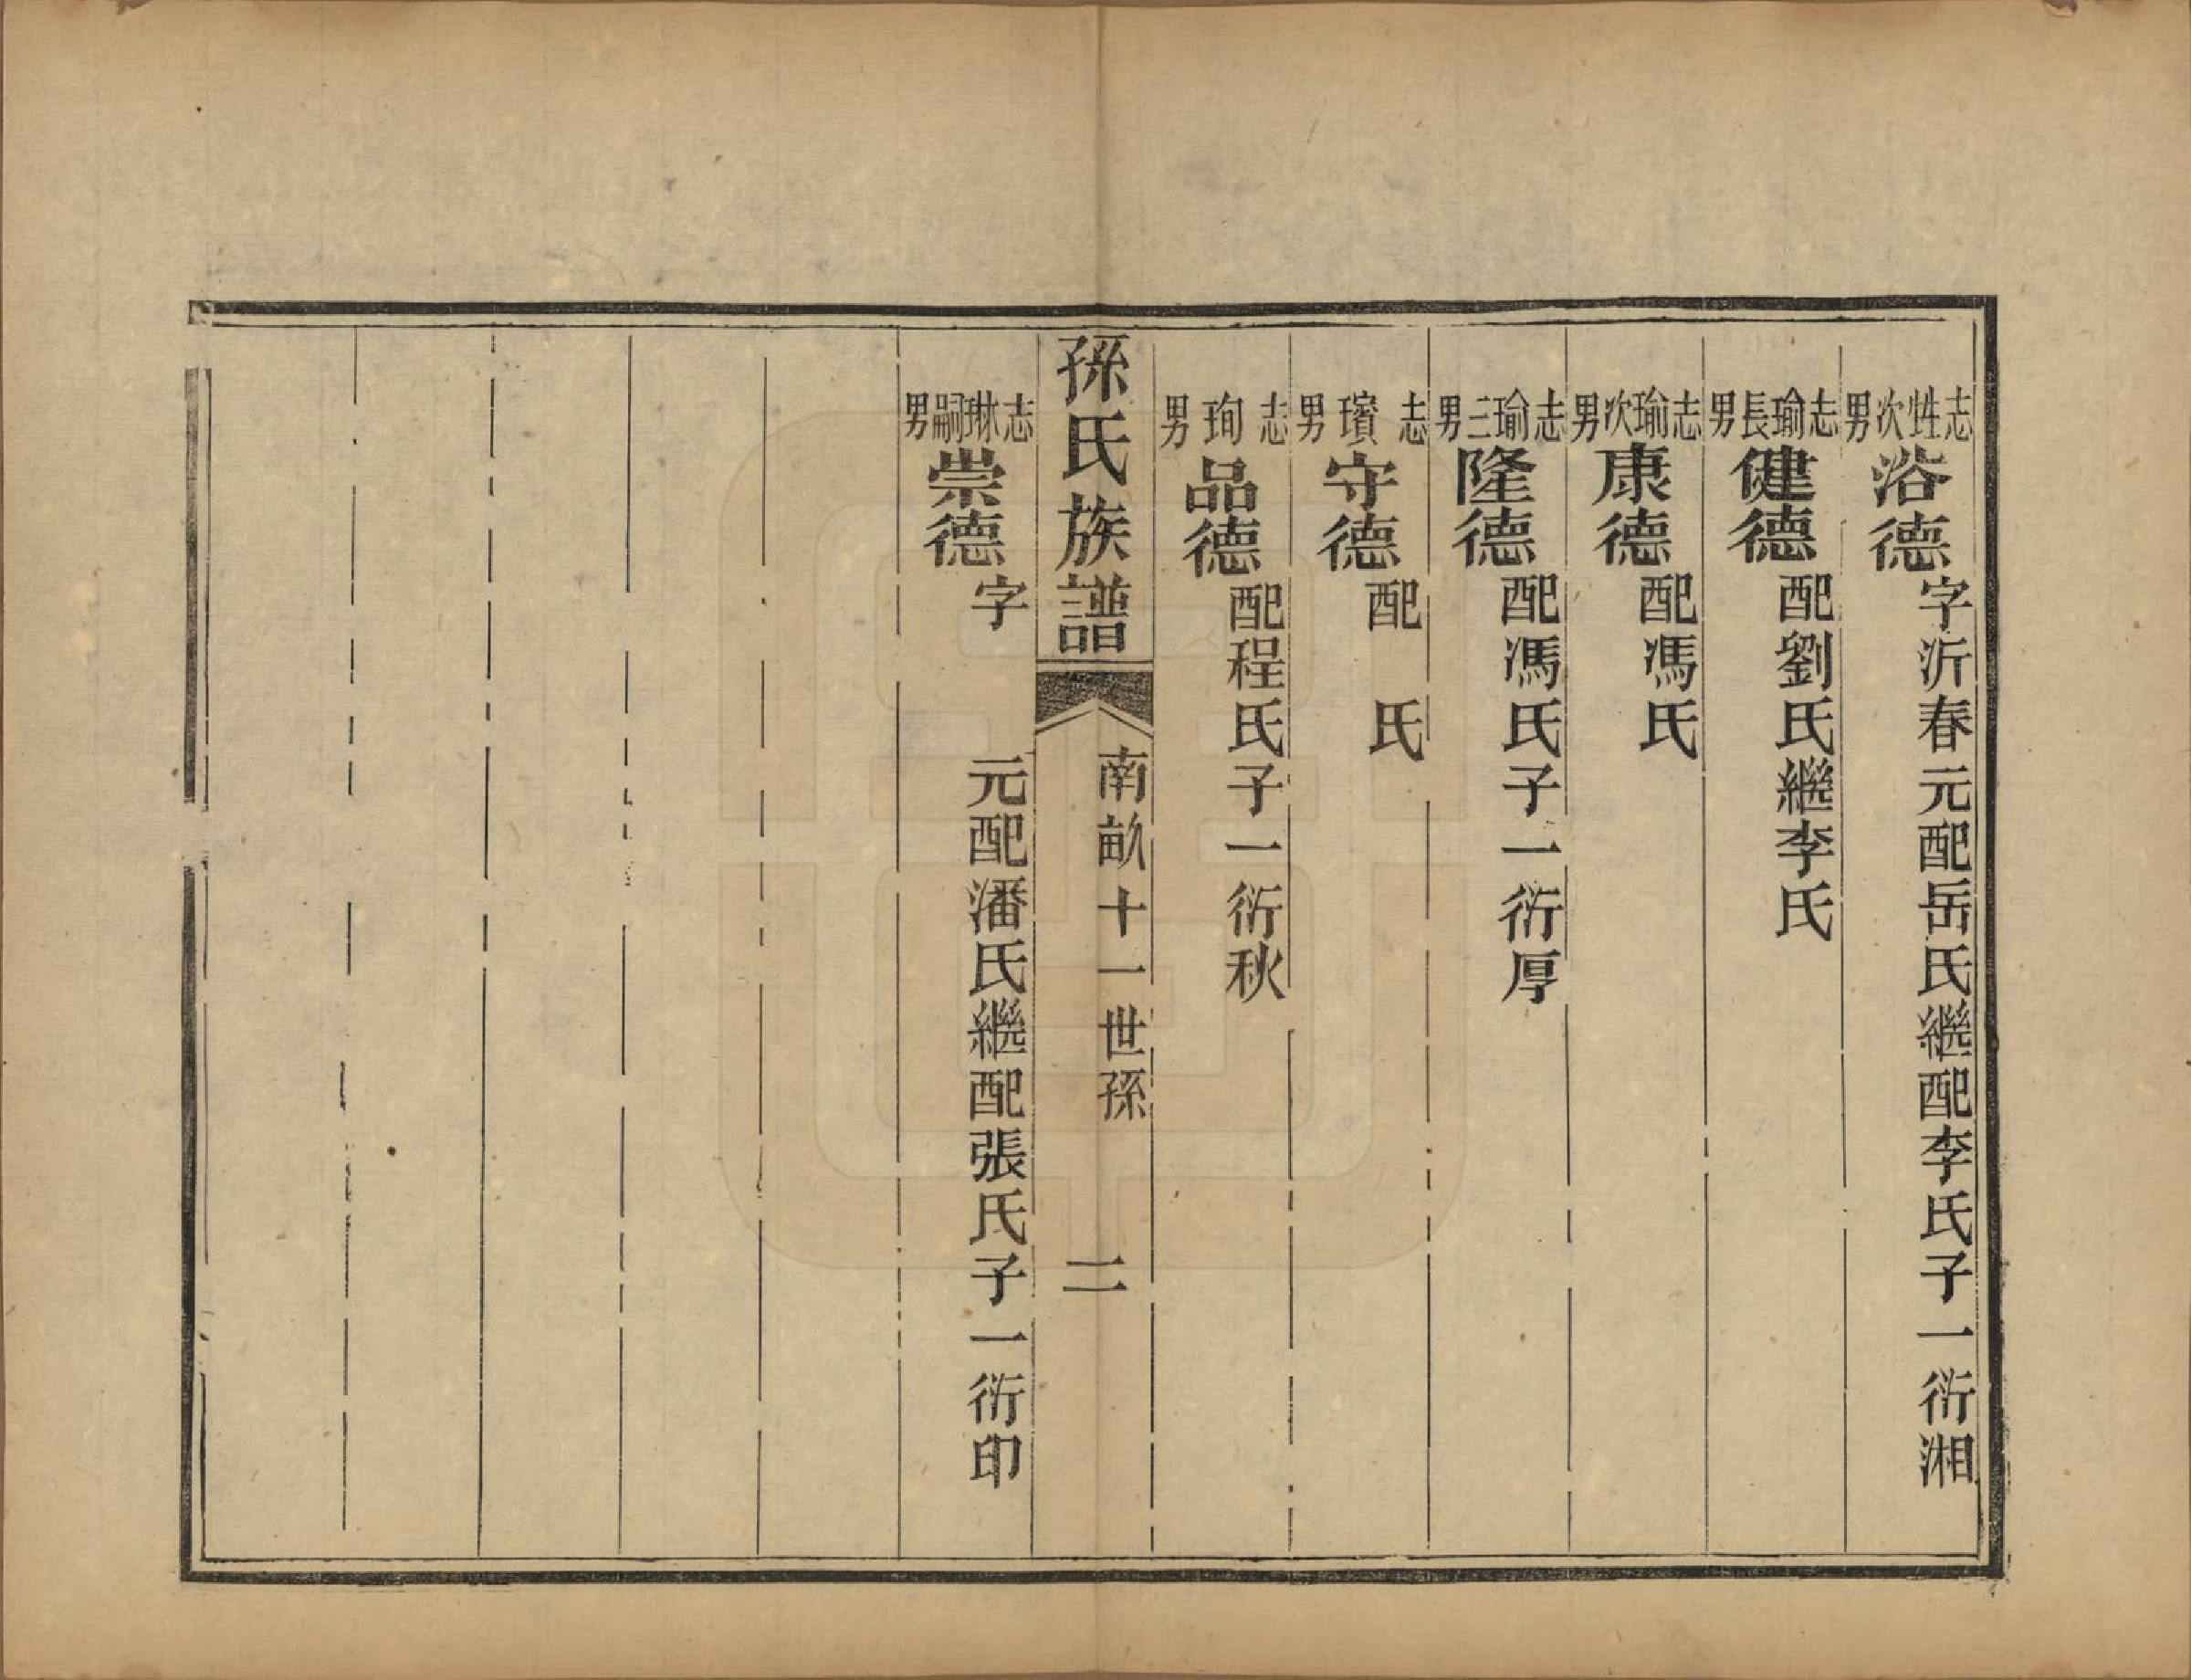 志甡次男浴德字沂春元配岳氏繼配李氏子一衍湘
志瑜長男健德配劉氏繼李氏
志瑜次男康德配馮氏
志瑜三男隆德配馮氏子一衍厚
志璸男守德配 氏
志珣男品德配程氏子一衍秋
孫氏族譜 南畝十一世孫 二
志琳嗣男崇德字 元配潘氏繼配張氏子一衍印